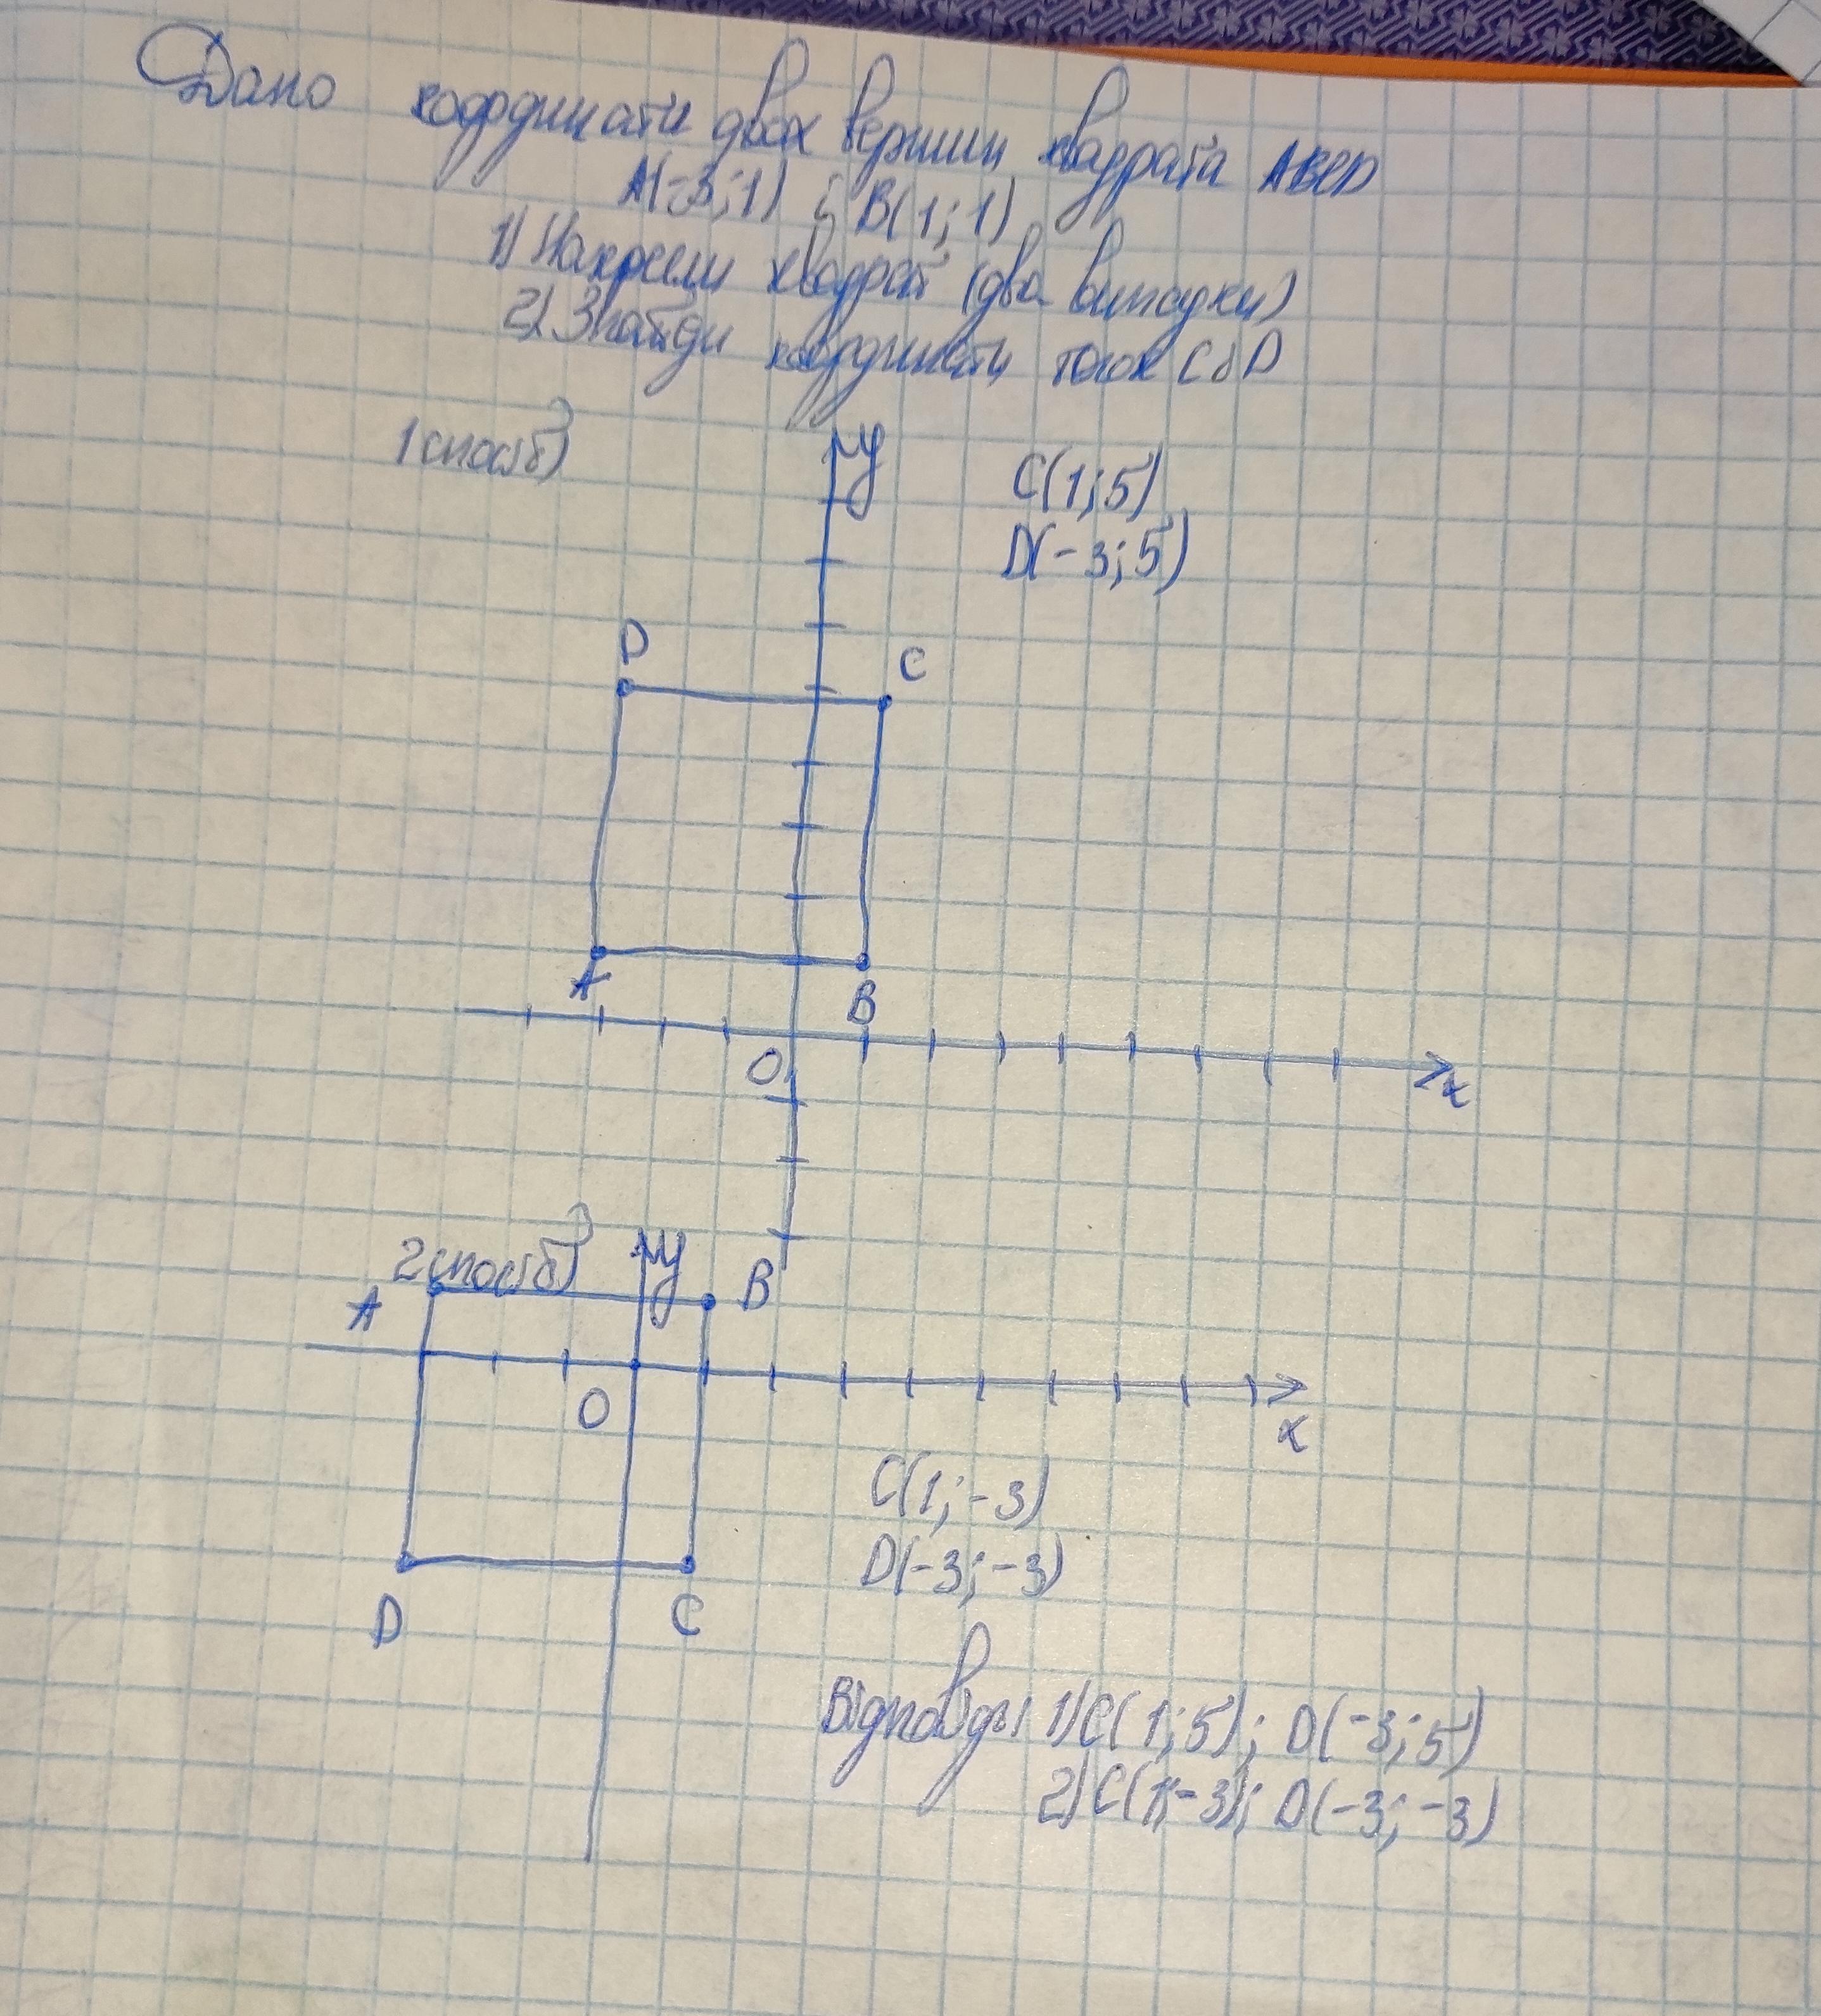 Дано координати двох вершин квадрата ABCD
A(-3;1) і B(1;1)
1) Накресли квадрат (два випадки)
2) Знайди координати точок C і D
1 спосіб)
y
C(1;5)
D(-3;5)
D
C
A
B
O
x
2 спосіб)
y
B
A
O
x
C(1;-3)
D(-3;-3)
D
C
Відповідь: 1) C(1;5); D(-3;5)
2) C(1;-3); D(-3;-3)